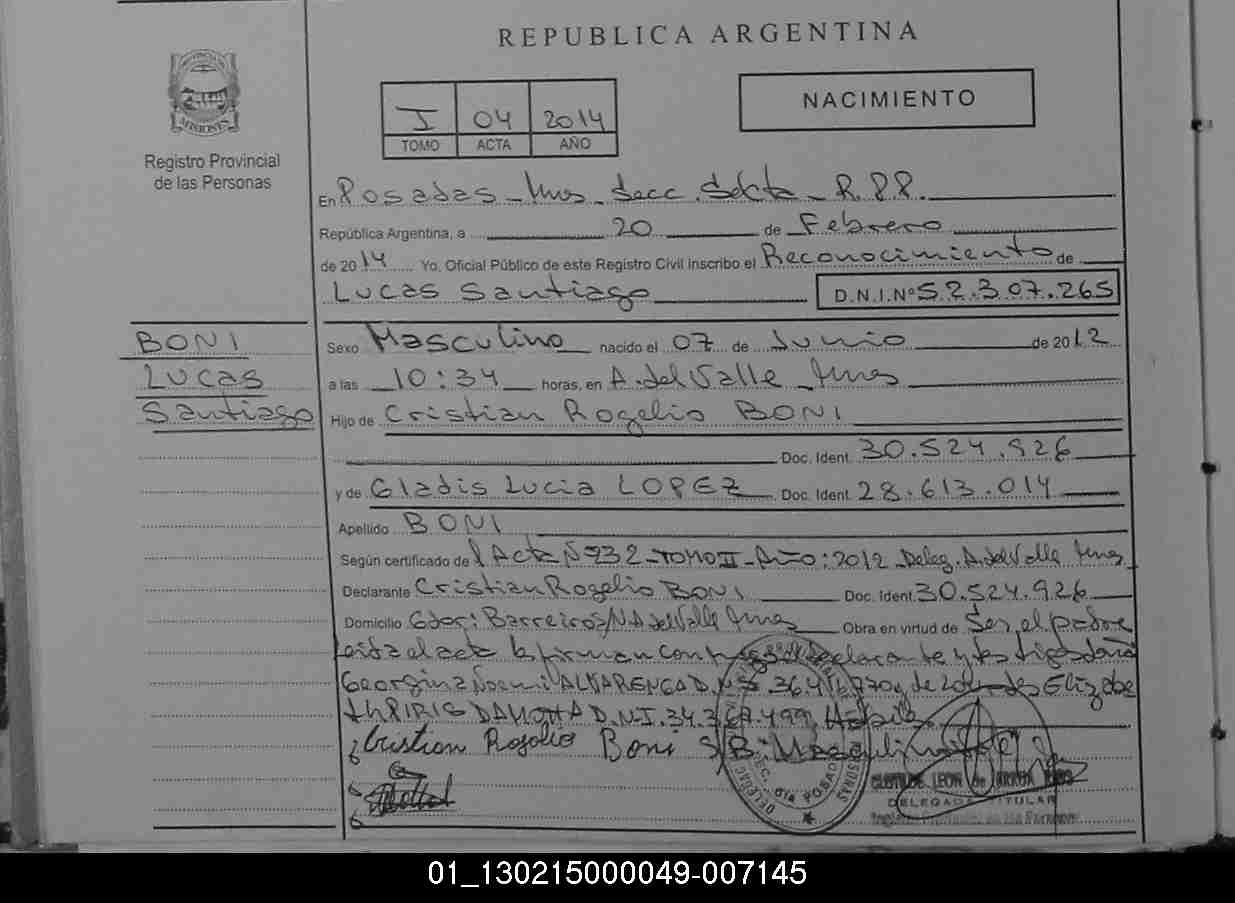 REPUBLICA ARGENTINA
PROVINCIA DE
MISIONES
Registro Provincial
de las Personas
I 04 2014
TOMO ACTA AÑO
NACIMIENTO
En Posadas - Mnes - Secc. Sexta - R.P.P.
República Argentina, a 20 de Febrero
de 2014 Yo, Oficial Público de este Registro Civil inscribo el Reconocimiento de
Lucas Santiago D.N.I.Nº 52.307.265
BONI
LUCAS
Santiago
Sexo Masculino nacido el 07 de Junio de 2012
a las 10:34 horas, en A. del Valle Mnes
Hijo de Cristian Rogelio BONI
Doc. Ident. 30.524.926
y de Gladis Lucia LOPEZ Doc. Ident. 28.613.014
Apellido BONI
Según certificado de Acta Nº 232 - TOMO II - Año: 2012 Deleg. A. del Valle Mnes
Declarante Cristian Rogelio BONI Doc. Ident. 30.524.926
Domicilio Gdor: Barreiro s/N A. del Valle Mnes Obra en virtud de Ser el padre
Leida el acta la firman con el declarante y testigos
Georgina Noemi ALVARENGA D.N.I. 36. y de
D.N.I. 34.
Cristian Rogelio Boni
DELEGADA TITULAR
01_130215000049-007145